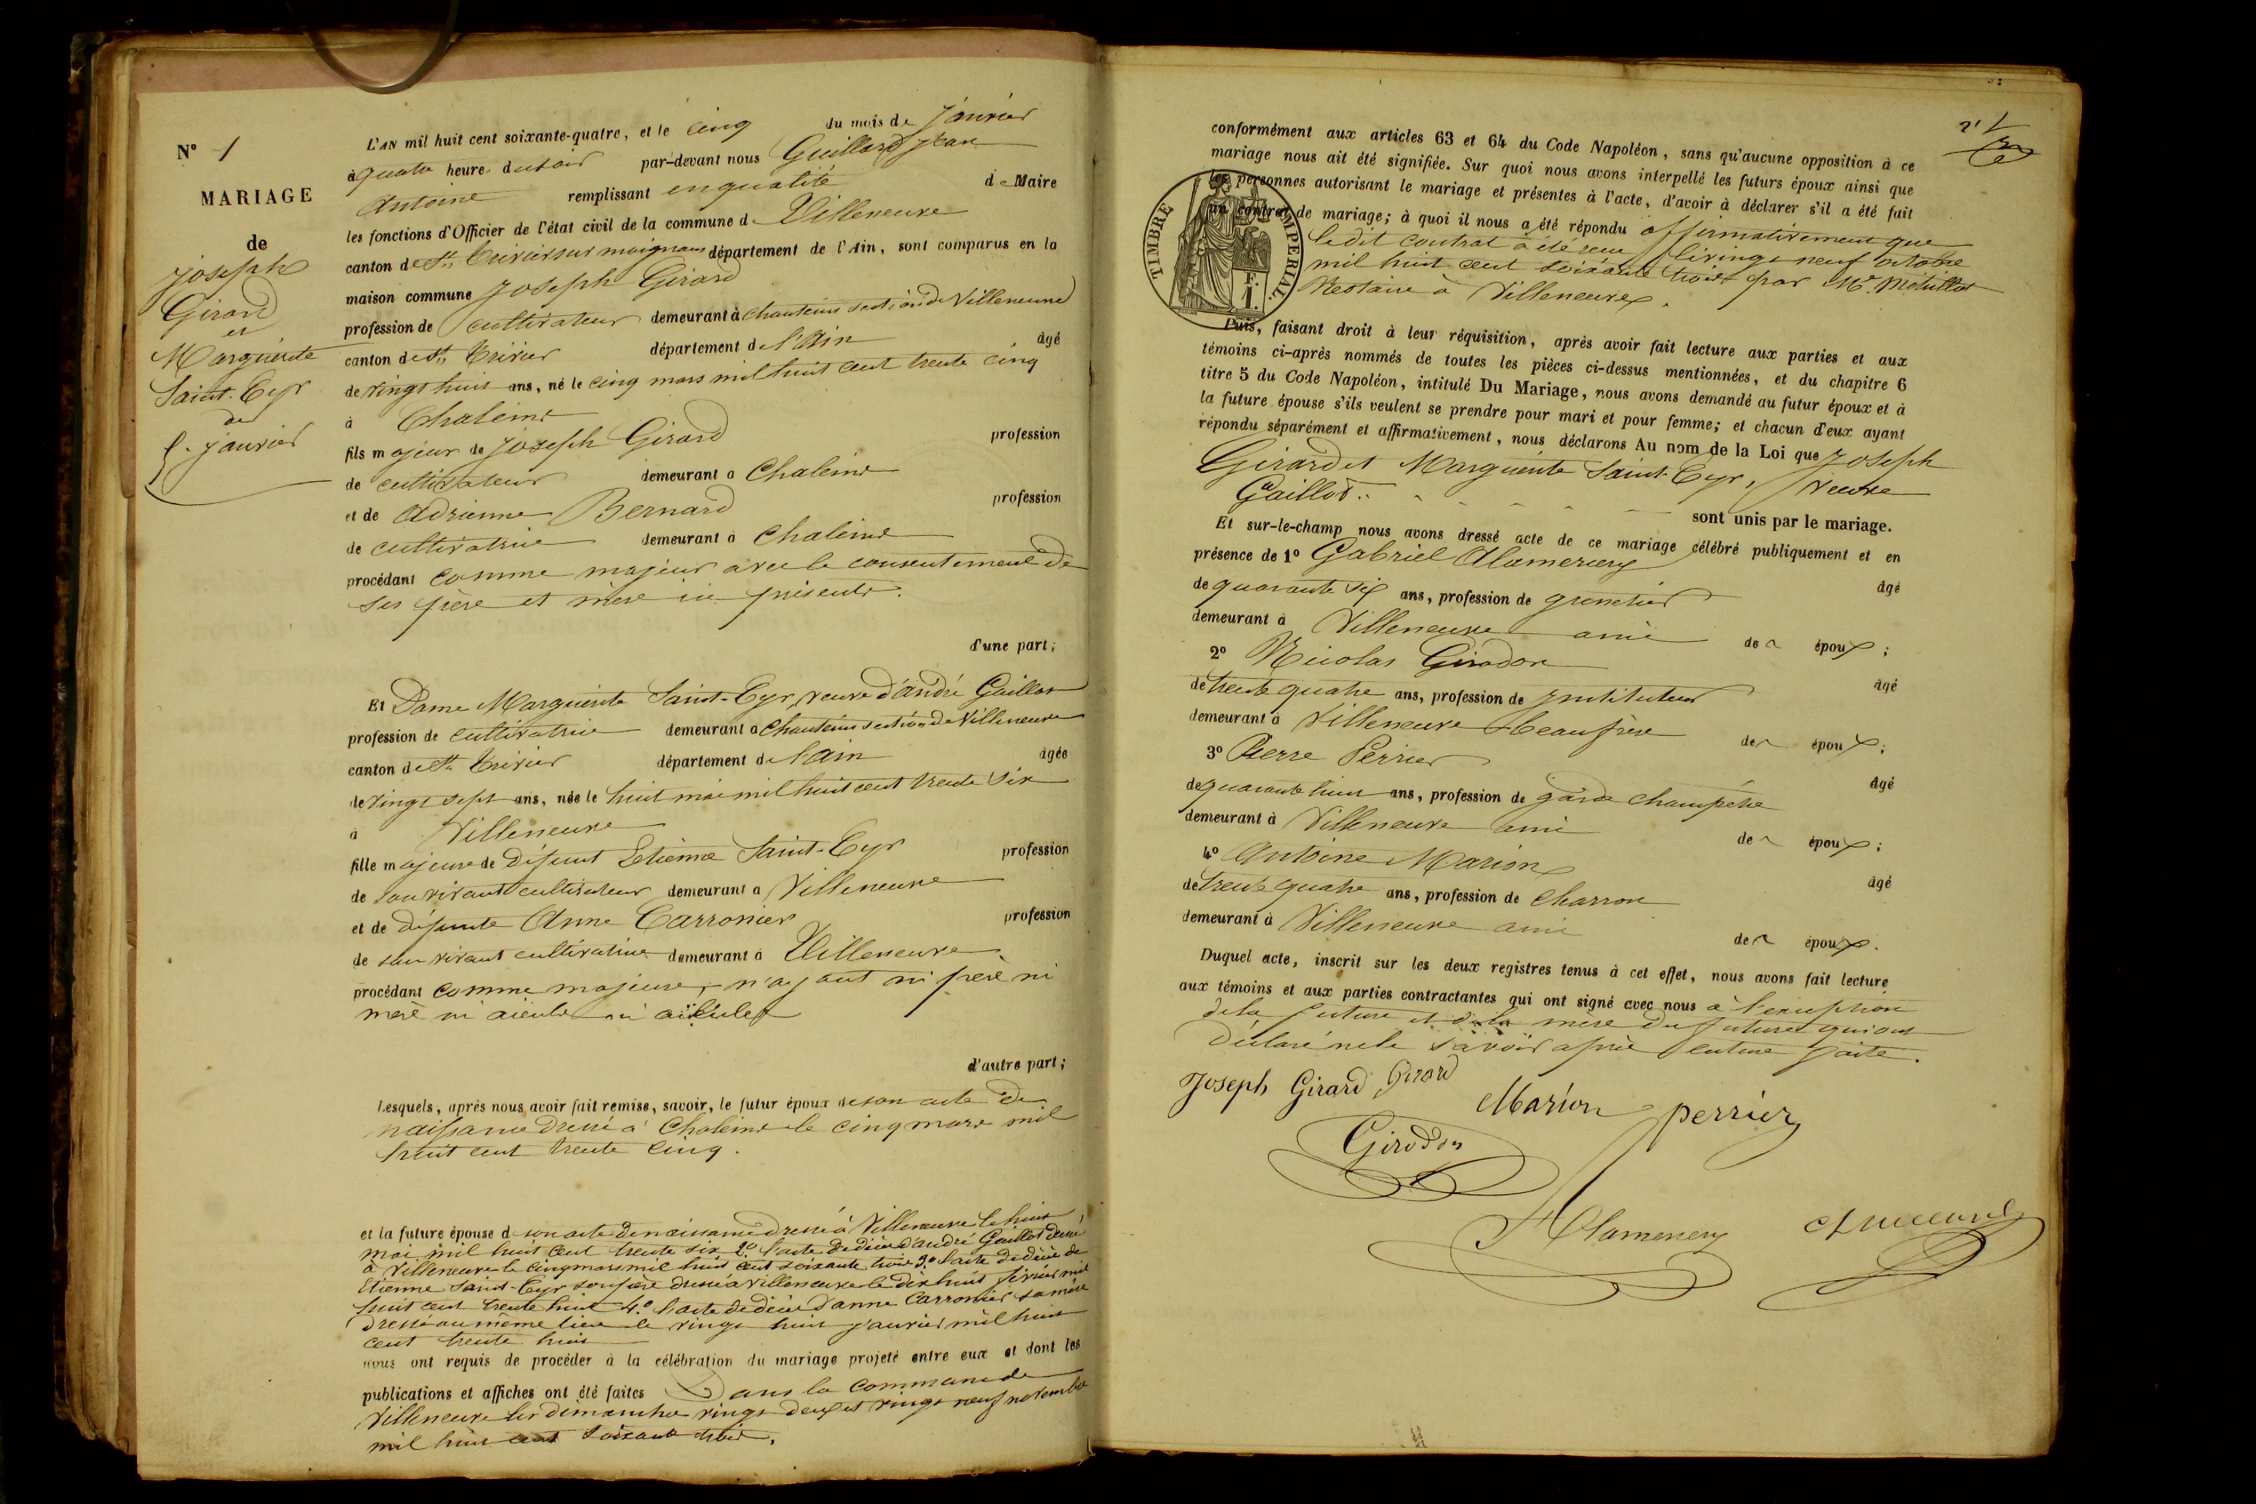 N° 1
MARIAGE
de
Joseph
Girard
et
Marguerite
Saint-Cyr
du
5 Janvier
L'AN mil huit cent soixante-quatre, et le cinq du mois de Janvier
à quatre heure du soir par-devant nous Guillard Jean
Antoine remplissant en qualité de Maire
les fonctions d'Officier de l'état civil de la commune de Villeneuve
canton de St Trivier sur moignans département de l'Ain, sont comparus en la
maison commune Joseph Girard
profession de cultivateur demeurant à Chanteins section de Villeneuve
canton de St Trivier département de l'ain âgé
de vingt huit ans, né le cinq mars mil huit cent trente cinq
à Chaleins
fils majeur de Joseph Girard profession
de cultivateur demeurant à Chaleins
et de Adrienne Bernard profession
de cultivatrice demeurant à Chaleins
procédant comme majeur avec le consentement de
ses père et mère ici présents.
d'une part;
Et Dame Marguerite Saint-Cyr, veuve d'andré Gaillot
profession de cultivatrice demeurant à Chanteins section de Villeneuve
canton de St Trivier département de l'ain âgée
de vingt sept ans, née le huit mai mil huit cent trente six
à Villeneuve
fille majeure de défunt Etienne Saint-Cyr profession
de son vivant cultivateur demeurant à Villeneuve
et de défunte Anne Carronier profession
de son vivant cultivatrice demeurant à Villeneuve
procédant comme majeure, n'ayant ni père ni
mère ni aieuls ni aieules
d'autre part;
Lesquels, après nous avoir fait remise, savoir, le futur époux de son acte de
naissance dressé à Chaleins le cinq mars mil
huit cent trente cinq.
et la future épouse d son acte de naissance dressé à Villeneuve le huit
mai mil huit cent trente six 2° l'acte de décès d'andré Gaillot dressé
à Villeneuve le cinq mars mil huit cent soixante trois 3° l'acte de décès de
Etienne Saint-Cyr son père dressé à Villeneuve le dix huit février mil
huit cent trente huit 4° l'acte de décès d'anne Carronier sa mère
dressé au même lieu le vingt huit janvier mil huit
cent trente huit
nous ont requis de procéder à la célébration du mariage projeté entre eux et dont les
publications et affiches ont été faites Dans la commune de
Villeneuve les dimanches vingt deux et vingt neuf novembre
mil huit cent soixante trois.
conformément aux articles 63 et 64 du Code Napoléon, sans qu'aucune opposition à ce
mariage nous ait été signifiée. Sur quoi nous avons interpellé les futurs époux ainsi que
les personnes autorisant le mariage et présentes à l'acte, d'avoir à déclarer s'il a été fait
un contrat de mariage; à quoi il nous a été répondu affirmativement que
le dit contrat a été reçu le vingt neuf octobre
mil huit cent soixante trois par Me
Notaire à Villeneuve.
TIMBRE IMPERIAL.
F.
1.
Puis, faisant droit à leur réquisition, après avoir fait lecture aux parties et aux
témoins ci-après nommés de toutes les pièces ci-dessus mentionnées, et du chapitre 6
titre 5 du Code Napoléon, intitulé Du Mariage, nous avons demandé au futur époux et à
la future épouse s'ils veulent se prendre pour mari et pour femme; et chacun d'eux ayant
répondu séparément et affirmativement, nous déclarons Au nom de la Loi que Joseph
Girard et Marguerite Saint-Cyr, Veuve
Gaillot
sont unis par le mariage.
Et sur-le-champ nous avons dressé acte de ce mariage célébré publiquement et en
présence de 1° Gabriel Alamercery âgé
de quarante six ans, profession de grenetier
demeurant à Villeneuve ami des époux;
2° Nicolas Girodon âgé
de trente quatre ans, profession de Instituteur
demeurant à Villeneuve beaufrère des époux;
3° Pierre Perrier âgé
de quarante huit ans, profession de garde champêtre
demeurant à Villeneuve ami des époux;
4° Antoine Marion âgé
de trente quatre ans, profession de charron
demeurant à Villeneuve ami des époux.
Duquel acte, inscrit sur les deux registres tenus à cet effet, nous avons fait lecture
aux témoins et aux parties contractantes qui ont signé avec nous à l'exception
de la future et de la mère du futur qui ont
déclaré ne le savoir après lecture faite.
Joseph Girard Girard
Marion perrier
Girodon
Alamercery